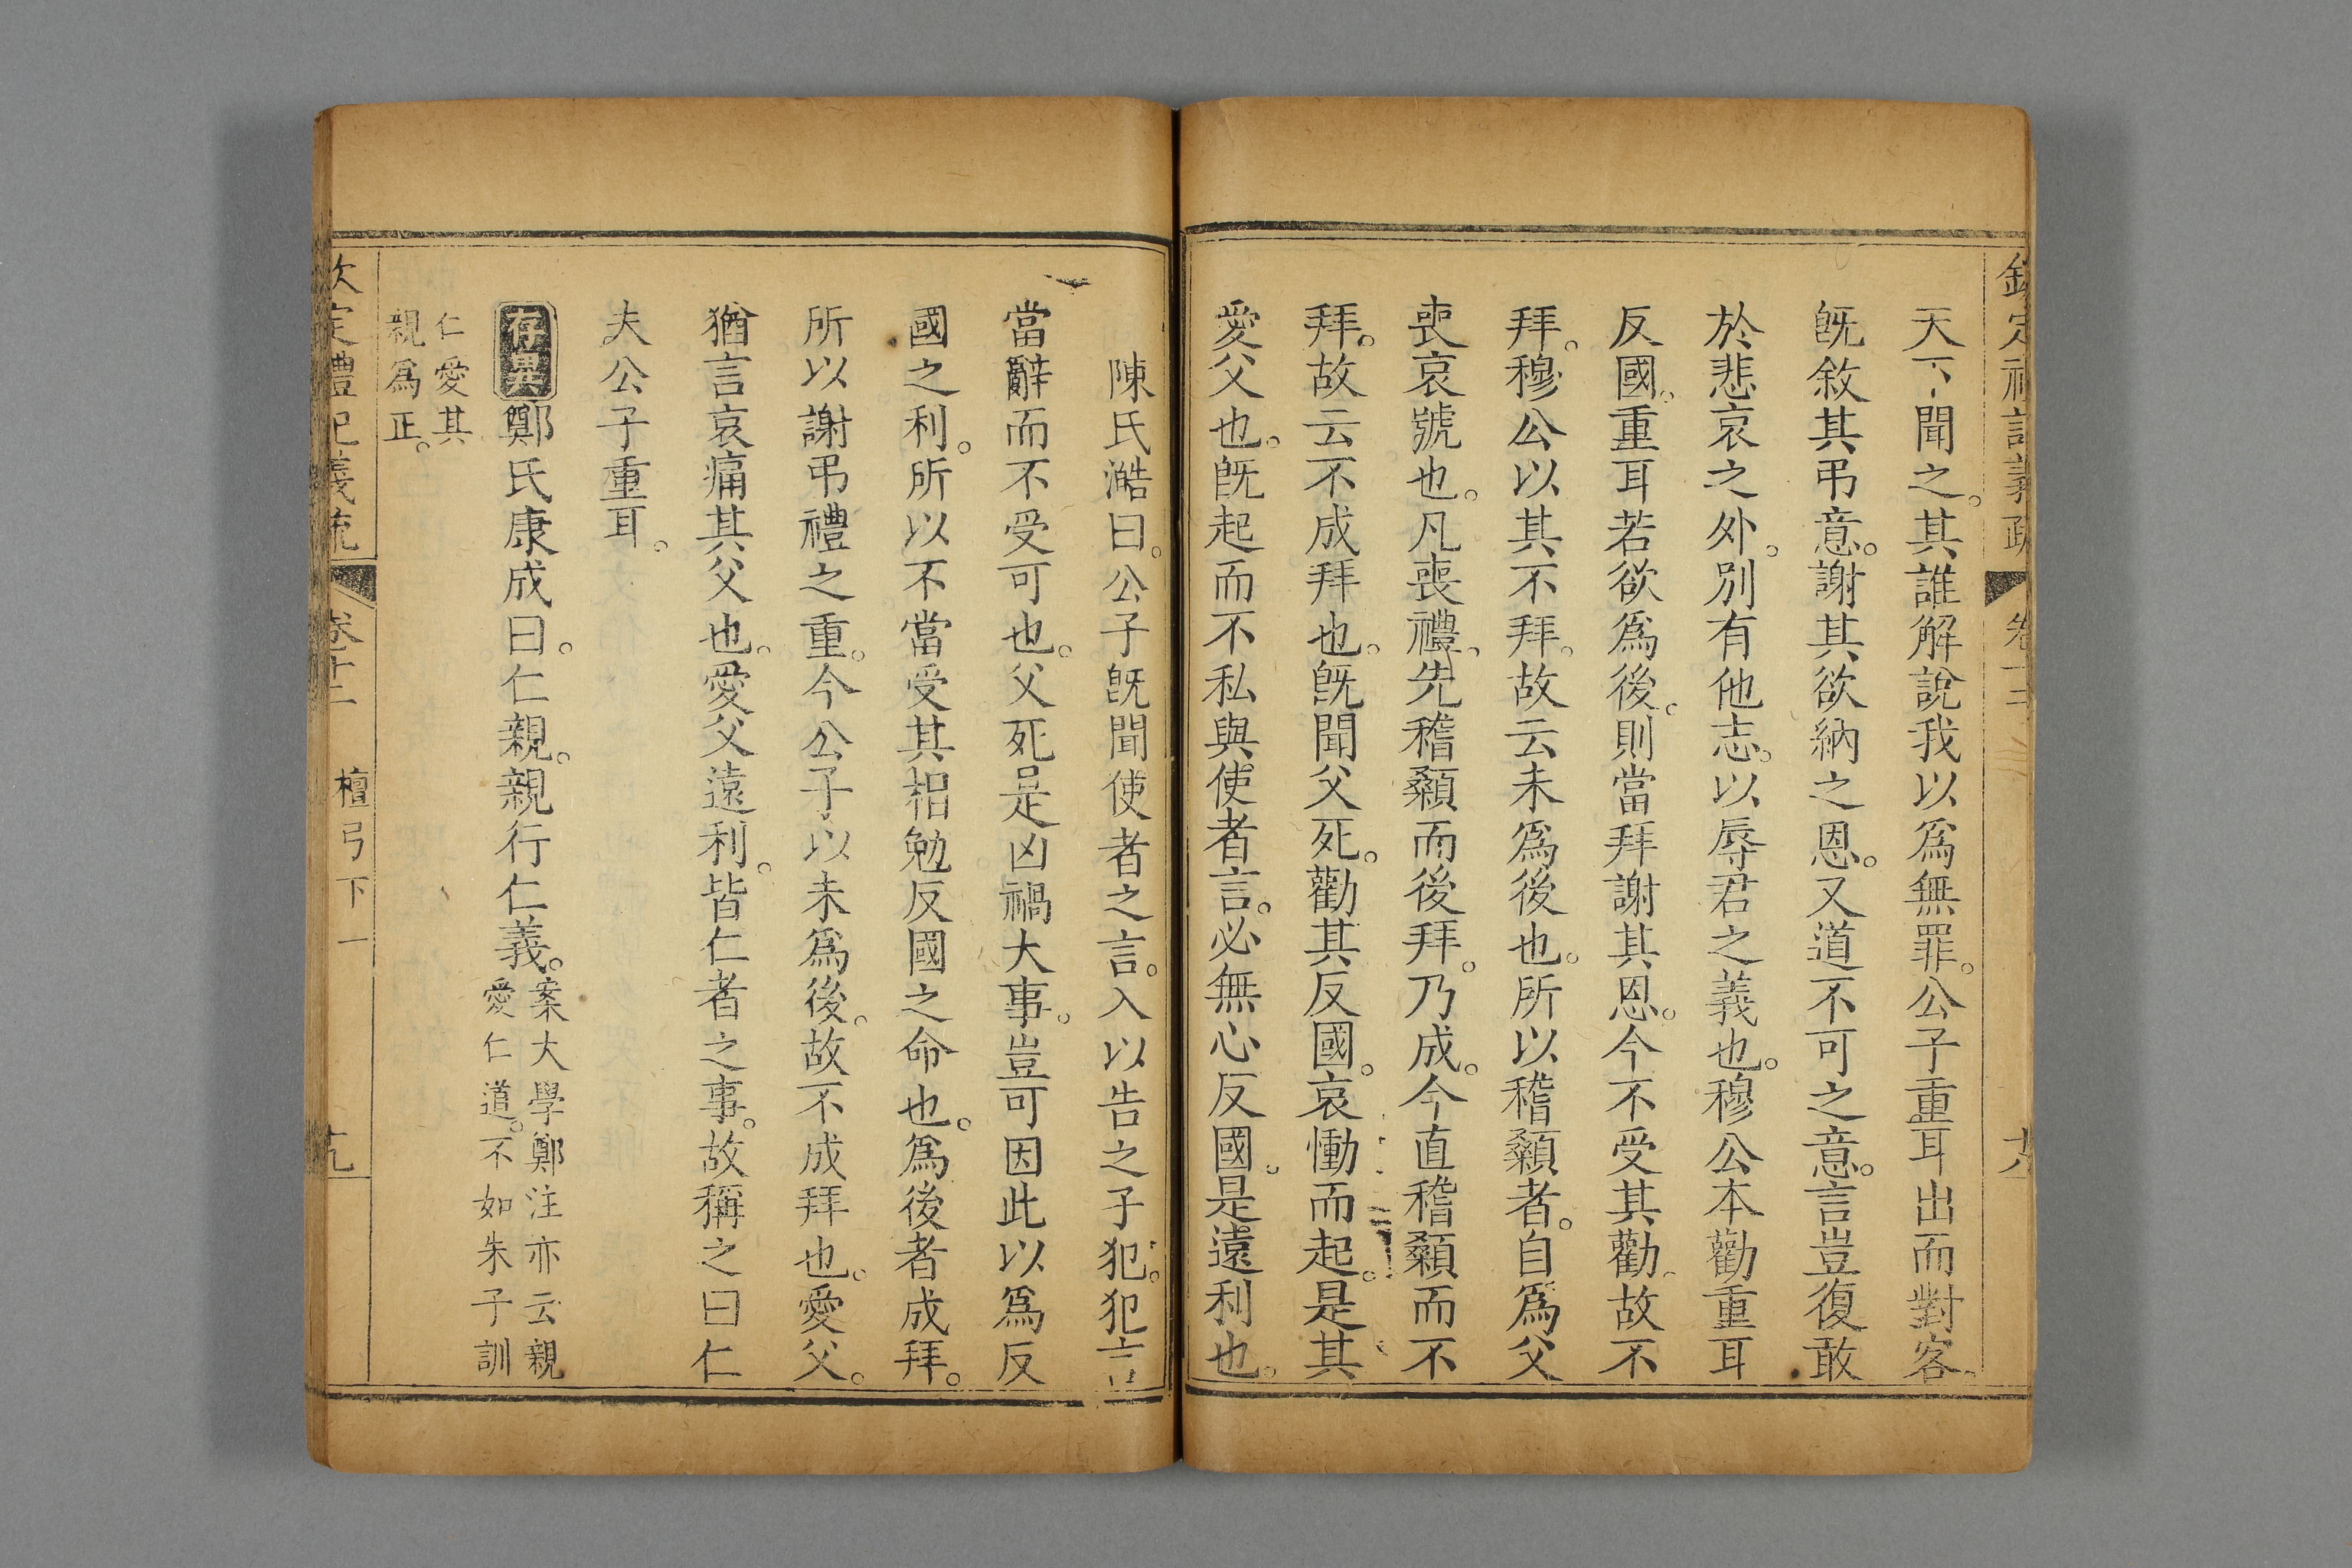 欽定禮記義疏 卷十二 十八
天下聞之。其誰解說我以爲無罪。公子重耳出而對客。
旣敘其弔意。謝其欲納之恩。又道不可之意。言豈復敢
於悲哀之外。別有他志。以辱君之義也。穆公本勸重耳
反國。重耳若欲爲後。則當拜謝其恩。今不受其勸。故不
拜。穆公以其不拜。故云未爲後也。所以稽顙者。自爲父
喪哀號也。凡喪禮。先稽顙而後拜。乃成。今直稽顙而不
拜。故云不成拜也。旣聞父死。勸其反國。哀慟而起。是其
愛父也。旣起而不私與使者言。必無心反國。是遠利也。
陳氏澔曰。公子旣聞使者之言。入以告之子犯。犯言
當辭而不受可也。父死是凶禍大事。豈可因此以爲反
國之利。所以不當受其相勉反國之命也。爲後者成拜。
所以謝弔禮之重。今公子以未爲後。故不成拜也。愛父。
猶言哀痛其父也。愛父遠利。皆仁者之事。故稱之曰仁
夫公子重耳。
存異 鄭氏康成曰。仁親。親行仁義。案大學鄭注亦云親
愛仁道。不如朱子訓
仁愛其
親爲正。
欽定禮記義疏 卷十二 檀弓下一 十九